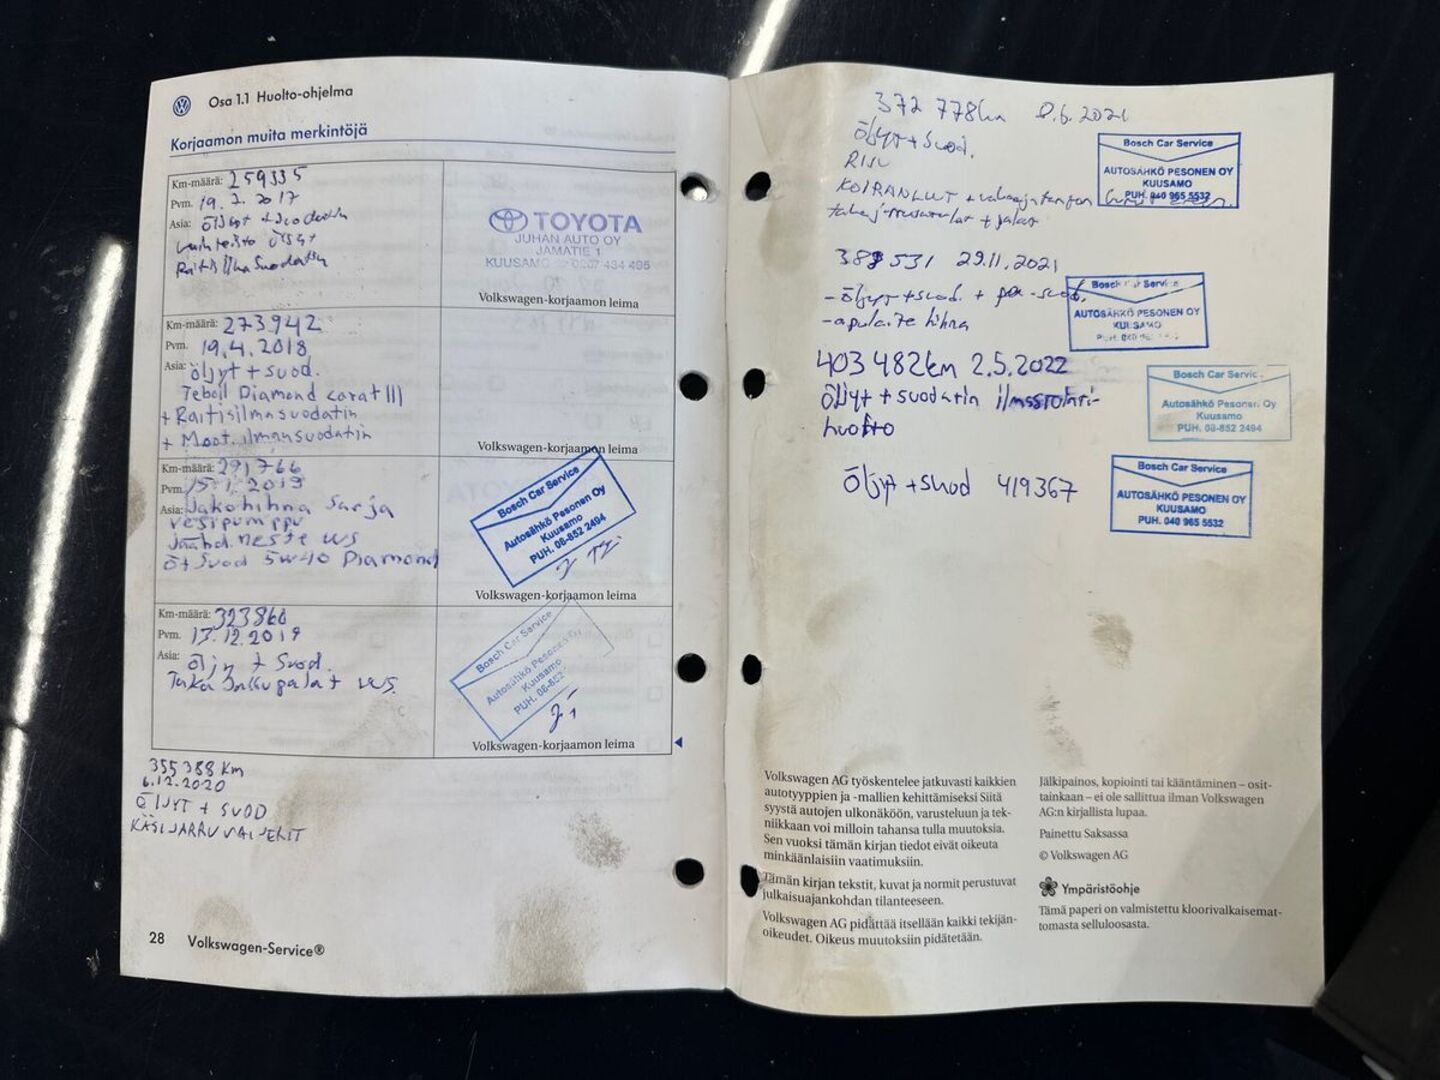 Osa 1.1 Huolto-ohjelma
Korjaamon muita merkintöjä
Km-määrä: 259335
Pvm. 19. 2017
Asia: Öljyt + suodatin
vaihteisto öljyt
Raitisilmasuodatin
TOYOTA
JUHAN AUTO OY
JAMATIE 1
KUUSAMO 0207 434 495
Volkswagen-korjaamon leima
Km-määrä: 273942
Pvm. 19.4.2018
Asia: Öljyt + suod.
Teboil Diamond carat III
+ Raitisilmasuodatin
+ Moot. ilmansuodatin
Volkswagen-korjaamon leima
Km-määrä: 291766
Pvm. 15.1.2019
Asia: Jakohihna sarja
vesipumppu
Jäähd. neste uus
Ö+Suod 5W40 Diamond
Bosch Car Service
Autosähkö Pesonen Oy
Kuusamo
PUH. 08-852 2494
Volkswagen-korjaamon leima
Km-määrä: 323860
Pvm. 17.12.2019
Asia: Öljy + Suod.
Taka Jarrupalat uus.
Bosch Car Service
Autosähkö Pesonen Oy
Kuusamo
PUH. 08-852
Volkswagen-korjaamon leima
355 388 Km
6.12.2020
ÖLJYT + SUOD
KÄSIJARRU VAIJERIT
28 Volkswagen-Service®
372 778km 8.6.2021
Öljyt + suod.
KOIRANLUUT +
+
Bosch Car Service
AUTOSÄHKÖ PESONEN OY
KUUSAMO
PUH. 040 965 5532
388 531 29.11.2021
- Öljyt + suod. + -suod.
- apulaite hihna
Bosch Car Service
AUTOSÄHKÖ PESONEN OY
KUUSAMO
403 482km 2.5.2022
Öljyt + suodatin ilmastointi-
huolto
Bosch Car Servic
Autosähkö Pesonen Oy
Kuusamo
PUH. 08-852 2494
Öljyt + suod 419367
Bosch Car Service
AUTOSÄHKÖ PESONEN OY
KUUSAMO
PUH. 040 965 5532
Volkswagen AG työskentelee jatkuvasti kaikkien
autotyyppien ja -mallien kehittämiseksi Siitä
syystä autojen ulkonäköön, varusteluun ja tek-
niikkaan voi milloin tahansa tulla muutoksia.
Sen vuoksi tämän kirjan tiedot eivät oikeuta
minkäänlaisiin vaatimuksiin.
Tämän kirjan tekstit, kuvat ja normit perustuvat
julkaisuajankohdan tilanteeseen.
Volkswagen AG pidättää itsellään kaikki tekijän-
oikeudet. Oikeus muutoksiin pidätetään.
Jälkipainos, kopiointi tai kääntäminen – osit-
tainkaan – ei ole sallittua ilman Volkswagen
AG:n kirjallista lupaa.
Painettu Saksassa
© Volkswagen AG
Ympäristöohje
Tämä paperi on valmistettu kloorivalkaisemat-
tomasta selluloosasta.